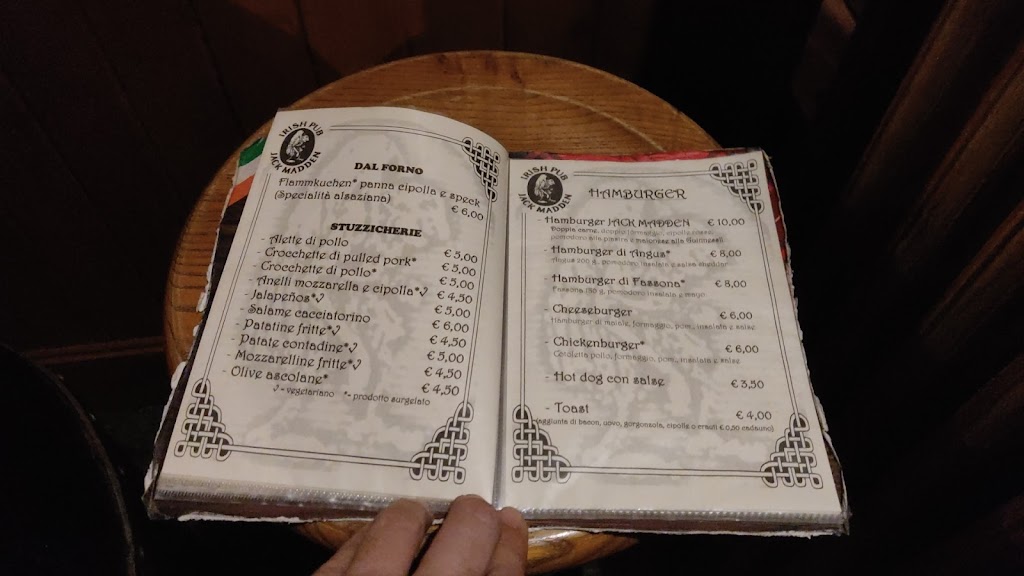 IRISH PUB
JACK MADDEN
DAL FORNO
Flammkuchen* panna cipolla e speck
(Specialità alsaziana)
€ 6,00
STUZZICHERIE
- Alette di pollo € 5,00
- Crocchette di pulled pork* € 5,00
- Crocchette di pollo* € 5,00
- Anelli mozzarella e cipolla*V € 4,50
- Jalapeños*V € 5,00
- Salame cacciatorino € 6,00
- Patatine fritte*V € 4,50
- Patate contadine*V € 5,00
- Mozzarelline fritte*V € 4,50
- Olive ascolane* € 4,50
V = vegetariano *= prodotto surgelato
IRISH PUB
JACK MADDEN
HAMBURGER
- Hamburger JACK MADDEN € 10,00
Doppia carne, doppio cipolla rossa,
pomodoro alla piastra e maionese alla Guinness
- Hamburger di Angus* € 8,00
Angus 200 g, pomodoro, insalata e salsa cheddar
- Hamburger di Fassona* € 8,00
Fassona g, pomodoro insalata e mayo
- Cheeseburger € 6,00
Hamburger di maiale, formaggio, pom., insalata e salse
- Chickenburger* € 6,00
Cotoletta pollo, formaggio, pom., insalata e salse
- Hot dog con salse € 3,50
- Toast € 4,00
(aggiunta di bacon, uovo, gorgonzola, cipolle o crauti € 0,50 cadauno)